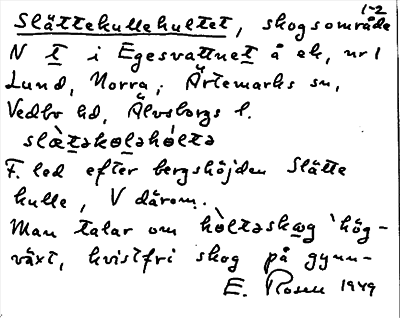 1-2
Slättekullekultet, skogsområde
N t i Egesvattnet å ek, nr 1
Lund, Norra, Ärtemarks sn,
Vedbo hd, Älvsborgs l.
slæ̀təkoləhòltə
F. led efter bergshöjden Slätte
kulle, V därom.
Man talar om hòltəskæg 'hög-
växt, kvistfri skog på gynn-
E. Rosen 1949